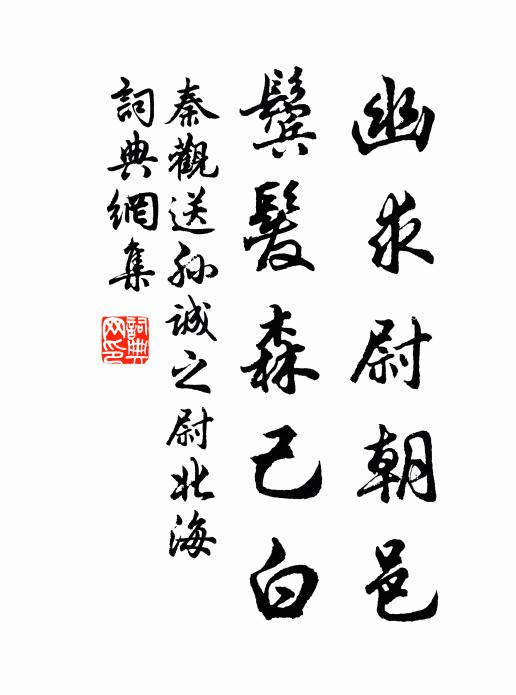 幽求尉朝邑
鬓髮森已白
秦觀送孙誠之尉北海
詞典網集
詞典网印